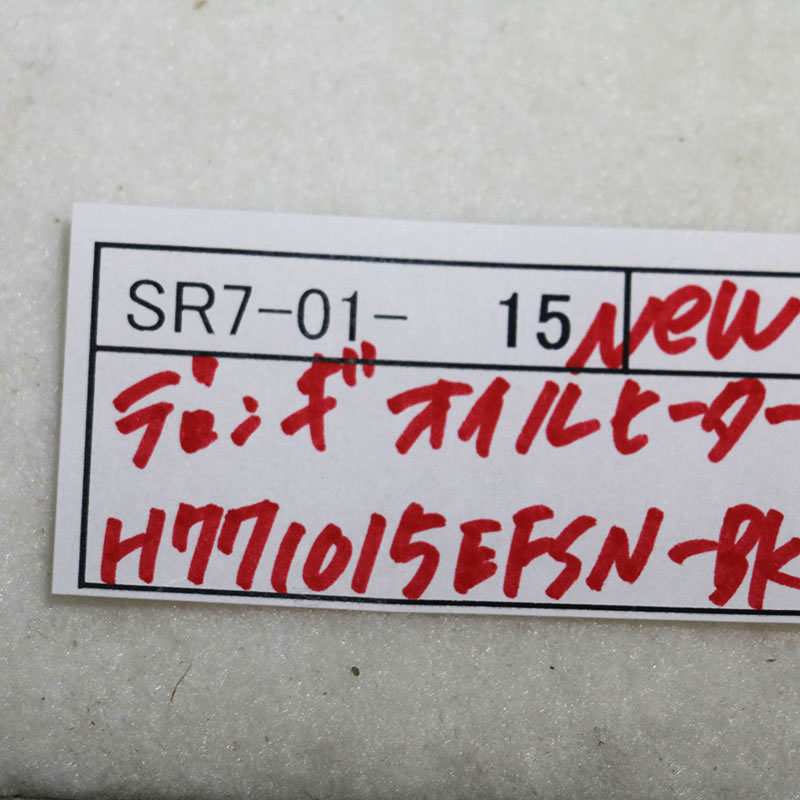 SR7-01- 15 NEW
デロンギ オイルヒーター
H771015EFSN-BK